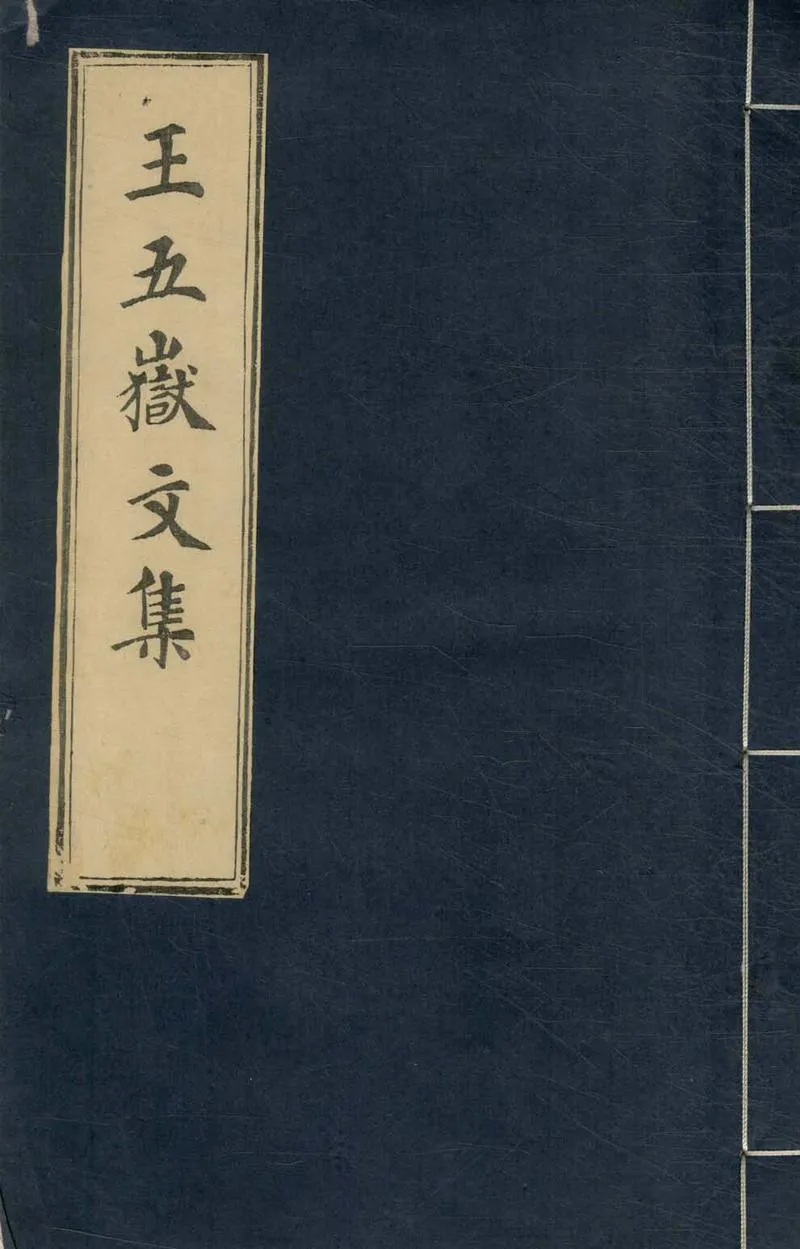 王五嶽文集